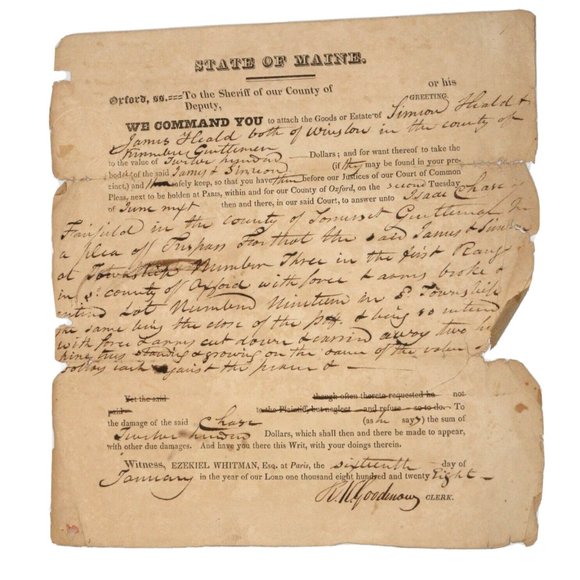 STATE OF MAINE.
Oxford, ss.===To the Sheriff of our County of or his
Deputy, GREETING.
WE COMMAND YOU to attach the Goods or Estate of Simeon Heald &
James Heald both of Winslow in the county of
Gentlemen
to the value of Twelve hundred Dollars; and for want thereof to take the
bodies of the said James & Simeon (if they may be found in your pre-
cinct,) and safely keep, so that you have them before our Justices of our Court of Common
Pleas, next to be holden at Paris, within and for our County of Oxford, on the second Tuesday
of June next then and there, in our said Court, to answer unto Isaac Chase
Fairfield in the county of Somerset Gentleman In
a plea of Trespass For that the said James &
at Township Number Three in the first Range
in county of Oxford with force & arms broke &
entered Lot Numbered Nineteen in Township
the same being the close of the & being so entered
with force & arms cut down & carried away two
pine trees & growing on the same of the value
dollars each against the peace &
Yet the said though often thereto requested ha not
paid to the Plaintiff, but neglect and refuse so to do. To
the damage of the said Chase (as he says) the sum of
Twelve hundred Dollars, which shall then and there be made to appear,
with other due damages. And have you there this Writ, with your doings therein.
Witness, EZEKIEL WHITMAN, Esq. at Paris, the sixteenth day of
January in the year of our LORD one thousand eight hundred and twenty Eight
R. K. Goodenow CLERK.